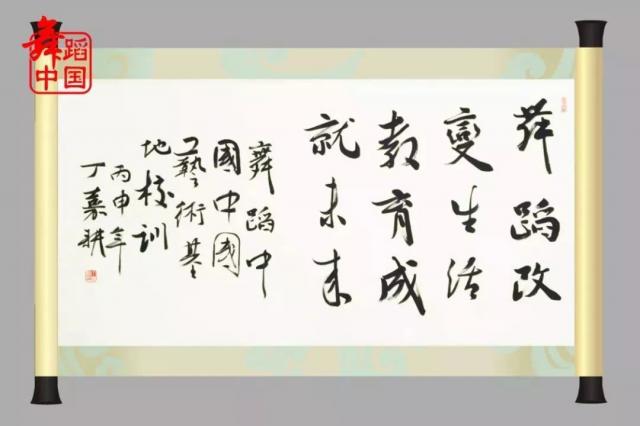 舞蹈
中国
舞蹈改
變生活
教育成
就未来
舞蹈中
國中國
艺藝術基
地校训
丙申年
丁嘉耕